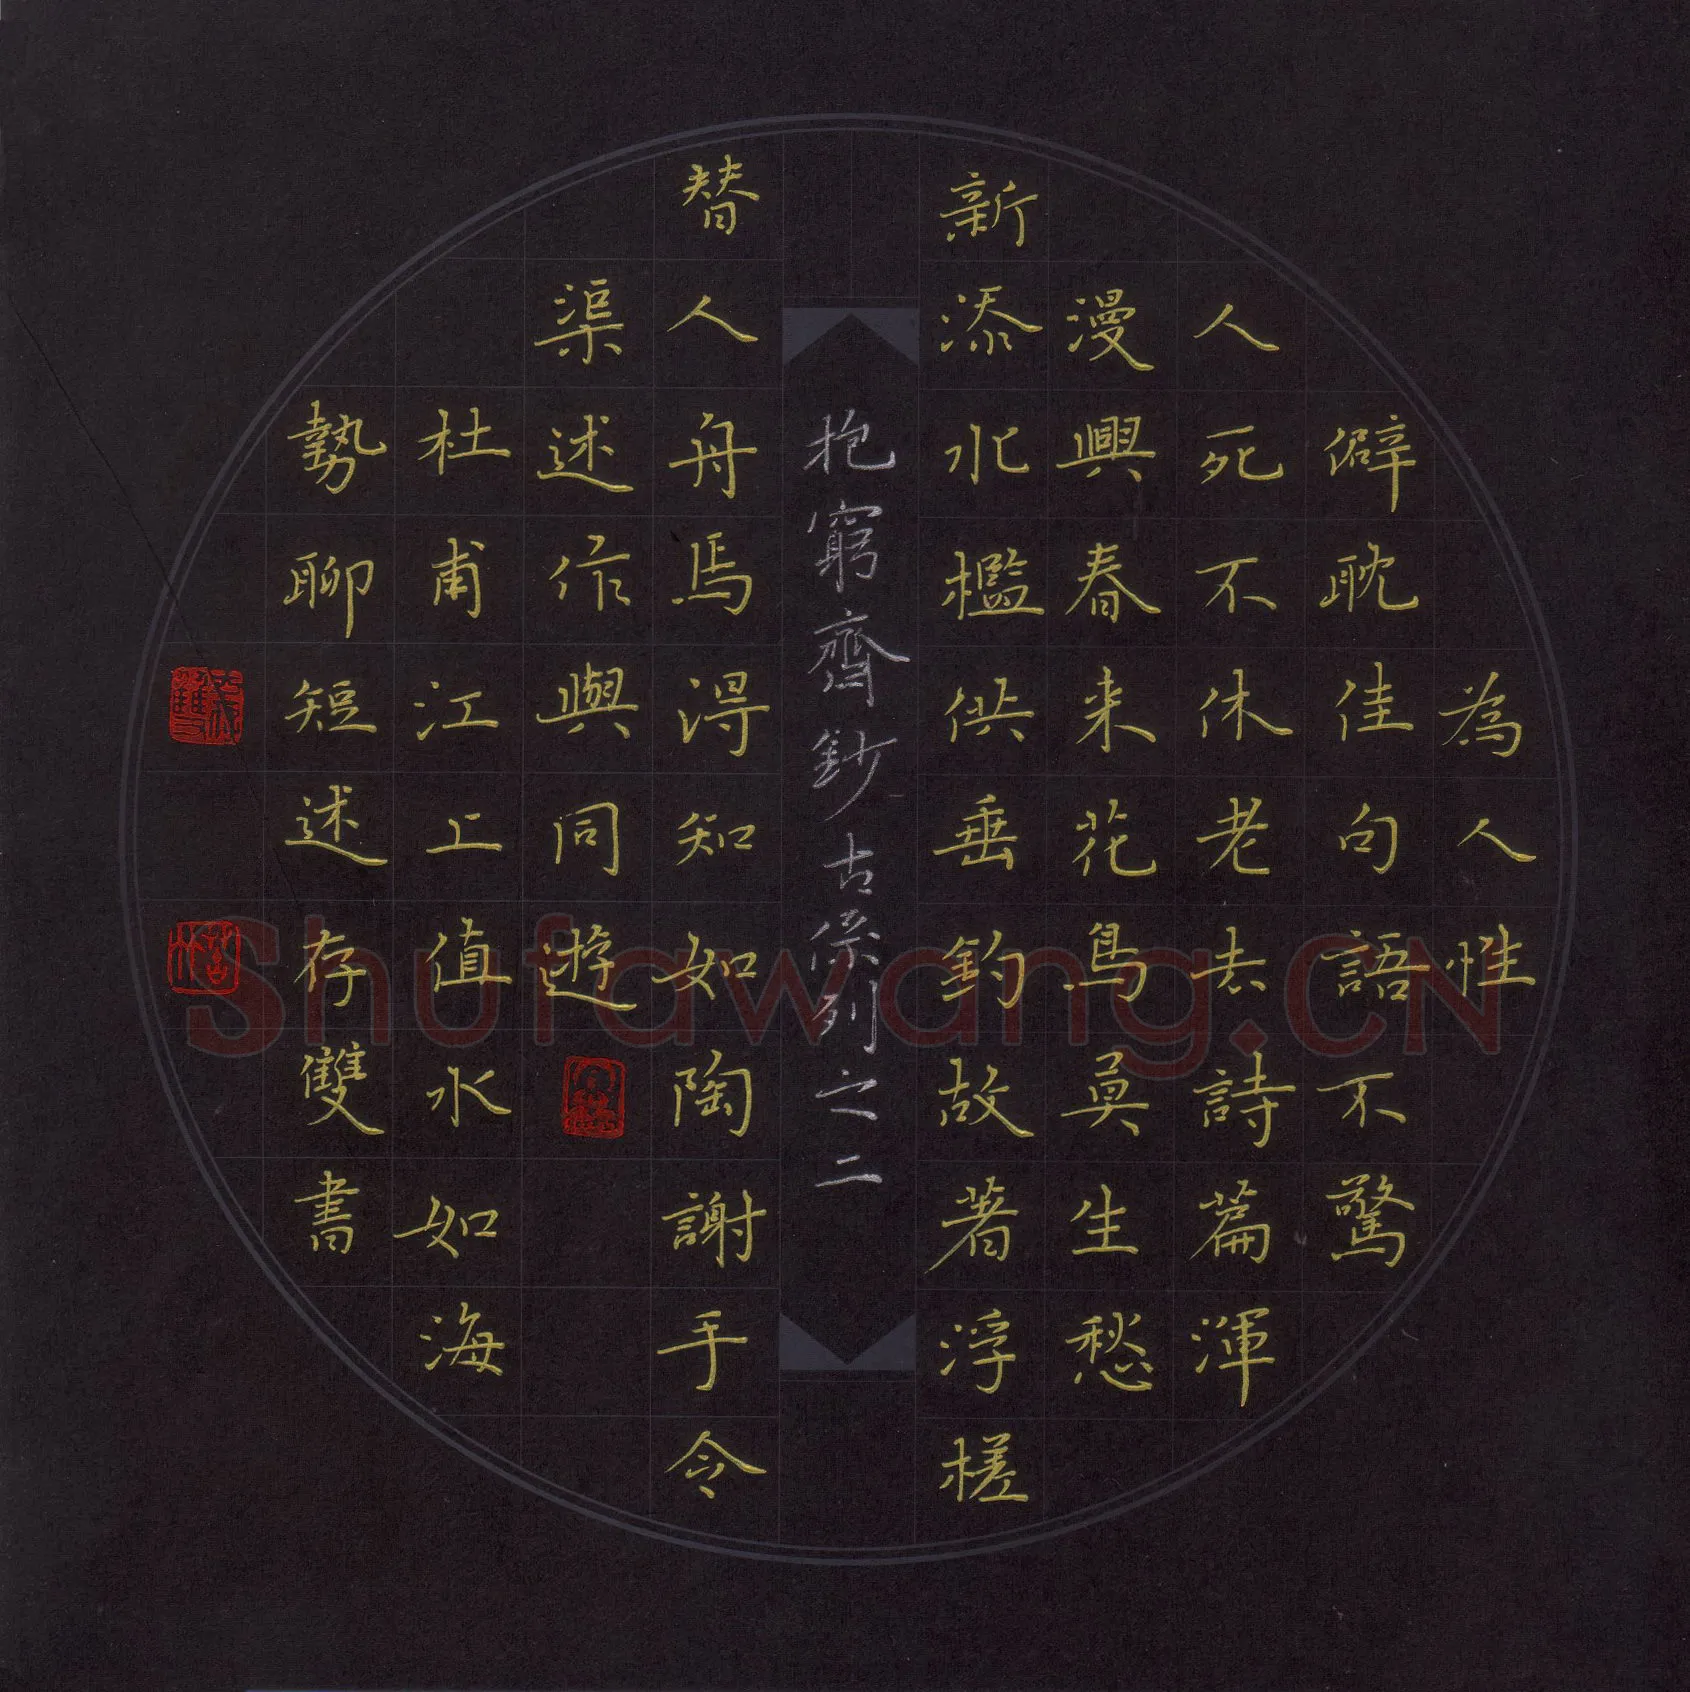 為人性
僻耽佳句語不驚
人死不休老去詩篇渾
漫興春来花鳥莫生愁
新添水檻供垂釣故著浮槎
抱窮齋鈔古係列之二
替人舟焉得知如陶謝手令
渠述作與同遊
杜甫江上值水如海
勢聊短述存雙書
Shufawang.CN